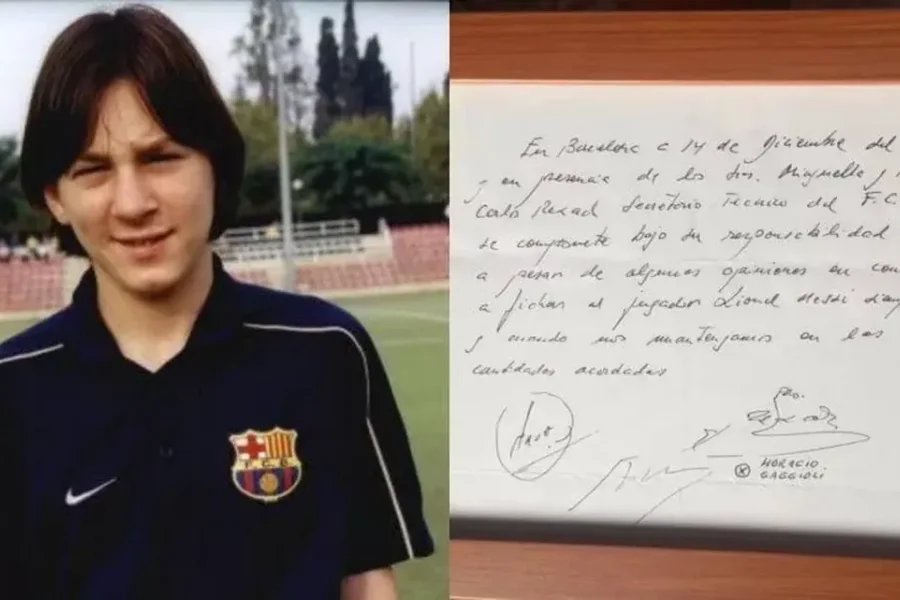 F C B
En Barcelona a 14 de Diciembre del
y en presencia de los Srs. Minguella y
Carlos Rexach Secretario Técnico del F.C.
se compromete bajo su responsabilidad
a pesar de algunas opiniones en con
a fichar al jugador Lionel Messi siemp
y cuando nos mantengamos en las
cantidades acordadas
HORACIO
GAGGIOLI